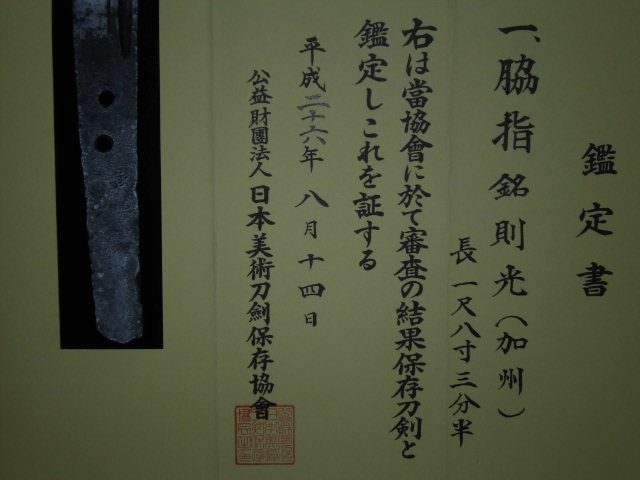 鑑定書
一、脇指 銘 則光（加州）
長 一尺八寸三分半
右は當協會に於て審査の結果保存刀剣と
鑑定しこれを証する
平成二十六年 八月十四日
公益財團法人 日本美術刀劍保存協會